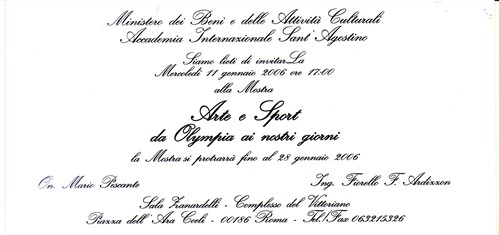 Ministero dei Beni e delle Attività Culturali
Accademia Internazionale Sant'Agostino
Siamo lieti di invitarLa
Mercoledì 11 gennaio 2006 ore 17:00
alla Mostra
Arte e Sport
da Olympia ai nostri giorni
la Mostra si protrarrà fino al 28 gennaio 2006
On. Mario Pescante
Ing. Fiorello F. Ardizzon
Sala Zanardelli - Complesso del Vittoriano
Piazza dell'Ara Coeli - 00186 Roma - Tel./Fax 063215326